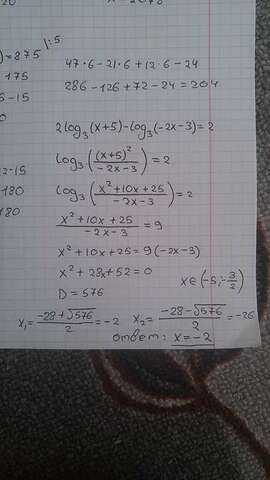 ) = 875 |:5
175
47·6-21·6+12·6-24
6-15
286-126+72-24=204
2log₃(x+5)-log₃(-2x-3)=2
log₃((x+5)²/(-2x-3))=2
12·15
180
log₃((x²+10x+25)/(-2x-3))=2
180
(x²+10x+25)/(-2x-3)=9
x²+10x+25=9(-2x-3)
x²+28x+52=0
x∈(-5,-3/2)
D=576
x₁=(-28+√576)/2=-2 x₂=(-28-√576)/2=-26
ответ: x=-2